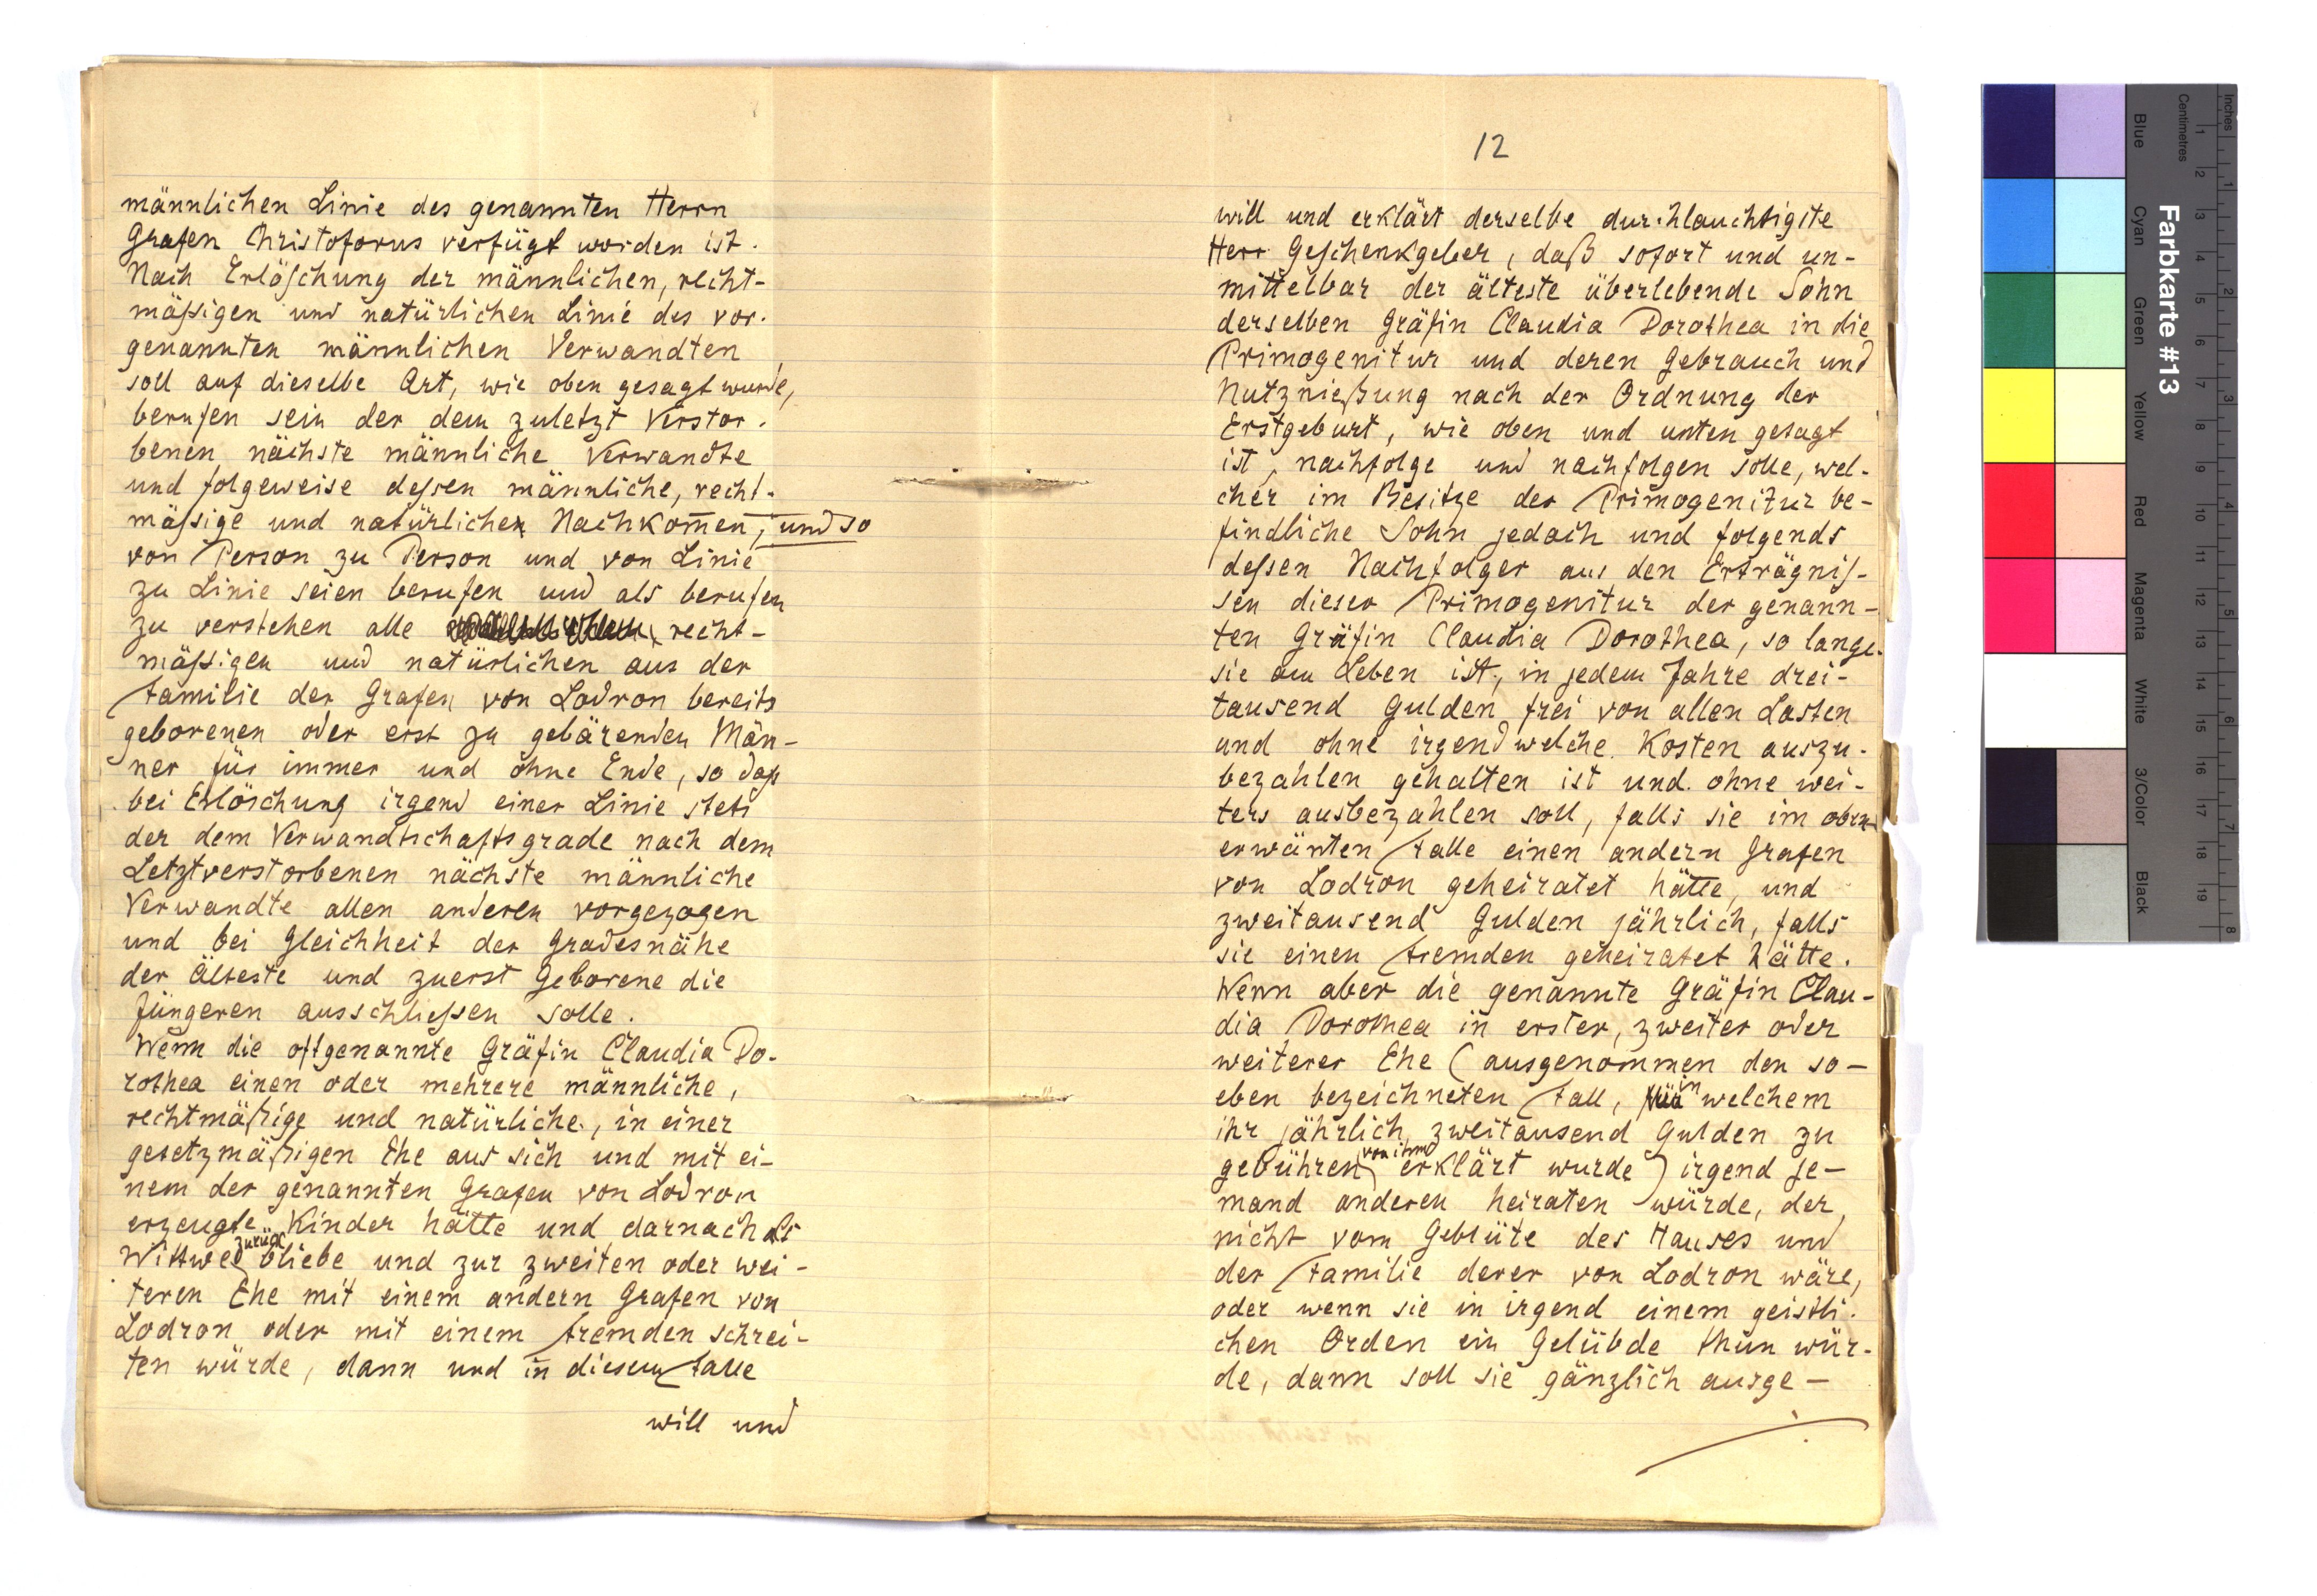 männlichen Linie des genannten Herrn
Grafen Christoforus verfügt worden ist.
Nach Erlöschung der männlichen, recht-
mäßigen und natürlichen Linie des vor-
genannten männlichen Verwandten
soll auf dieselbe Art, wie oben gesagt wurde,
berufen sein der dem zuletzt Verstor-
benen nächste männliche Verwandte
und folgeweise dessen männliche, recht-
mäßige und natürlichen Nachkom̄en, und so
von Person zu Person und von Linie
zu Linie seien berufen und als berufen
zu verstehen alle recht-
mäßigen und natürlichen aus der
Familie der Grafen von Lodron bereits
geborenen oder erst zu gebärenden Män-
ner für immer und ohne Ende, so daß
bei Erlöschung irgend einer Linie stets
der dem Verwandtschaftsgrade nach dem
Letztverstorbenen nächste männliche
Verwandte allen anderen vorgezogen
und bei Gleichheit der Gradesnähe
der Älteste und zuerst Geborene die
Jüngeren ausschließen solle.
Wenn die oftgenannte Gräfin Claudia Do-
rothea einen oder mehrere männliche,
rechtmäßige und natürliche, in einer
gesetzmäßigen Ehe aus sich und mit ei-
nem der genannten Grafen von Lodron
erzeugte Kinder hätte und darnach als
Wittwe zurück bliebe und zur zweiten oder wei-
teren Ehe mit einem andern Grafen von
Lodron oder mit einem Fremden schrei-
ten würde, dann und in diesem Falle
will und
12
will und erklärt derselbe durchlauchtigste
Herr Geschenkgeber, daß sofort und un-
mittelbar der älteste überlebende Sohn
derselben Gräfin Claudia Dorothea in die
Primogenitur und deren Gebrauch und
Nutznießung nach der Ordnung der
Erstgeburt, wie oben und unten gesagt
ist, nachfolge und nachfolgen solle, wel-
cher im Besitze der Primogenitur be-
findliche Sohn jedoch und folgends
dessen Nachfolger aus den Erträgnis-
sen dieser Primogenitur der genann-
ten Gräfin Claudia Dorothea, so lange
sie am Leben ist, in jedem Jahre drei-
tausend Gulden frei von allen Lasten
und ohne irgend welche Kosten auszu-
bezahlen gehalten ist und ohne wei-
ters ausbezahlen soll, falls sie im oben
erwänten Falle einen andern Grafen
von Lodron geheiratet hätte, und
zweitausend Gulden jährlich, falls
sie einen Fremden geheiratet hätte.
Wenn aber die genannte Gräfin Clau-
dia Dorothea in erster, zweiter oder
weiterer Ehe (ausgenommen den so-
eben bezeichneten Fall, in welchem
ihr jährlich zweitausend Gulden zu
gebühren von ihm erklärt wurde) irgend je-
mand anderen heiraten würde, der
nicht vom Geblüte des Hauses und
der Familie derer von Lodron wäre,
oder wenn sie in irgend einem geistli-
chen Orden ein Gelübde thun wür-
de, dann soll sie gänzlich ausge-
Farbkarte #13
Inches
Centimetres
Blue Cyan Green Yellow Red Magenta White 3/Color Black
1 2 3 4 5 6 7 8 9 10 11 12 13 14 15 16 17 18 19
1 2 3 4 5 6 7 8